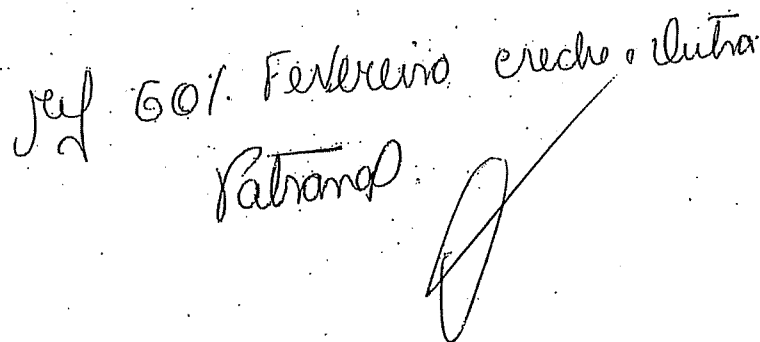 ref 60%. Fevereiro creche. Dutra
Patronal.